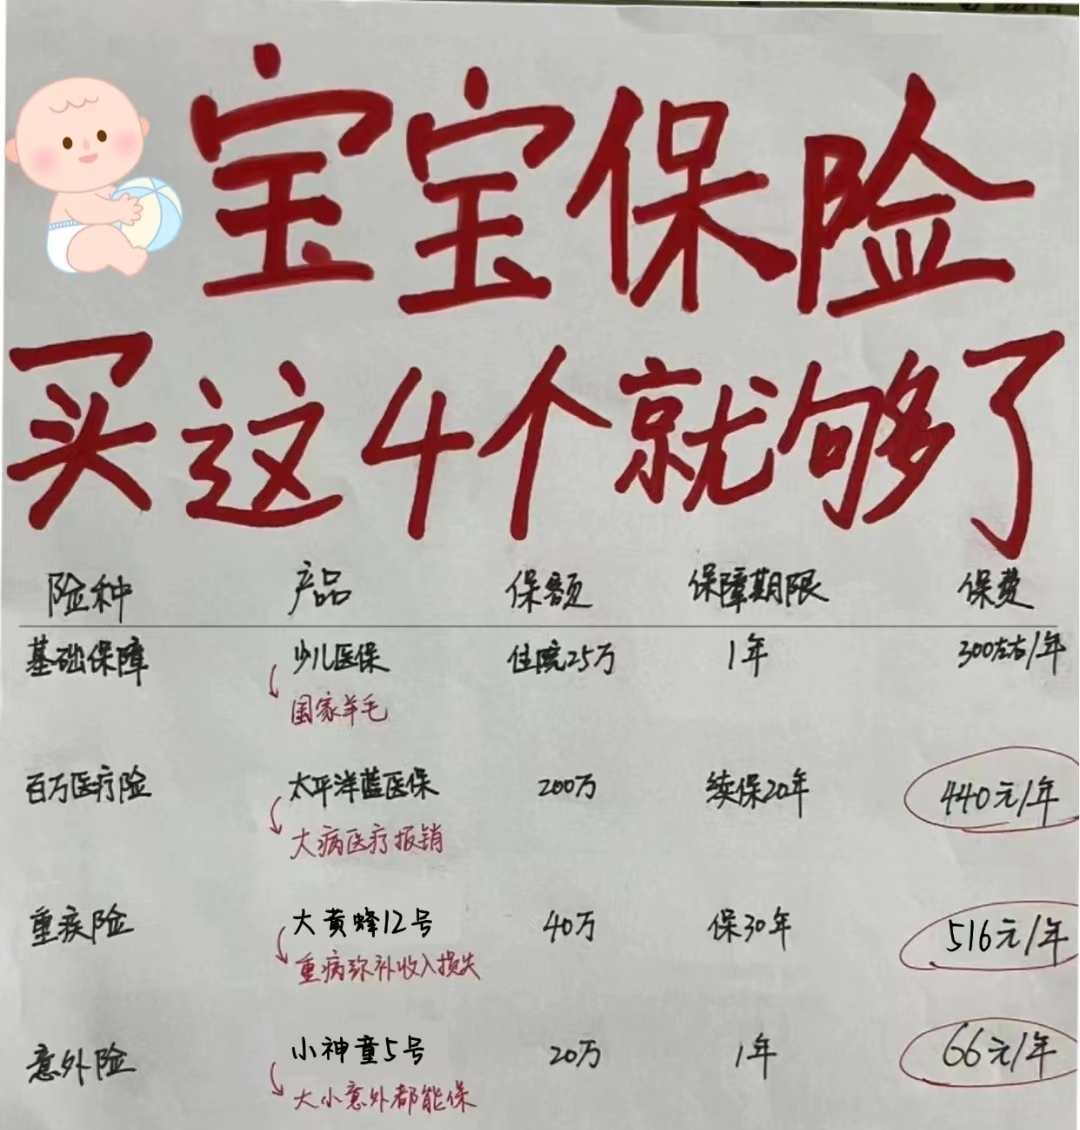 宝宝保险
买这4个就够了
险种 产品 保额 保障期限 保费
基础保障 少儿医保 住院25万 1年 300左右/年
国家羊毛
百万医疗险 太平洋蓝医保 200万 续保20年 440元/年
大病医疗报销
重疾险 大黄蜂12号 40万 保30年 516元/年
重病弥补收入损失
意外险 小神童5号 20万 1年 66元/年
大小意外都能保